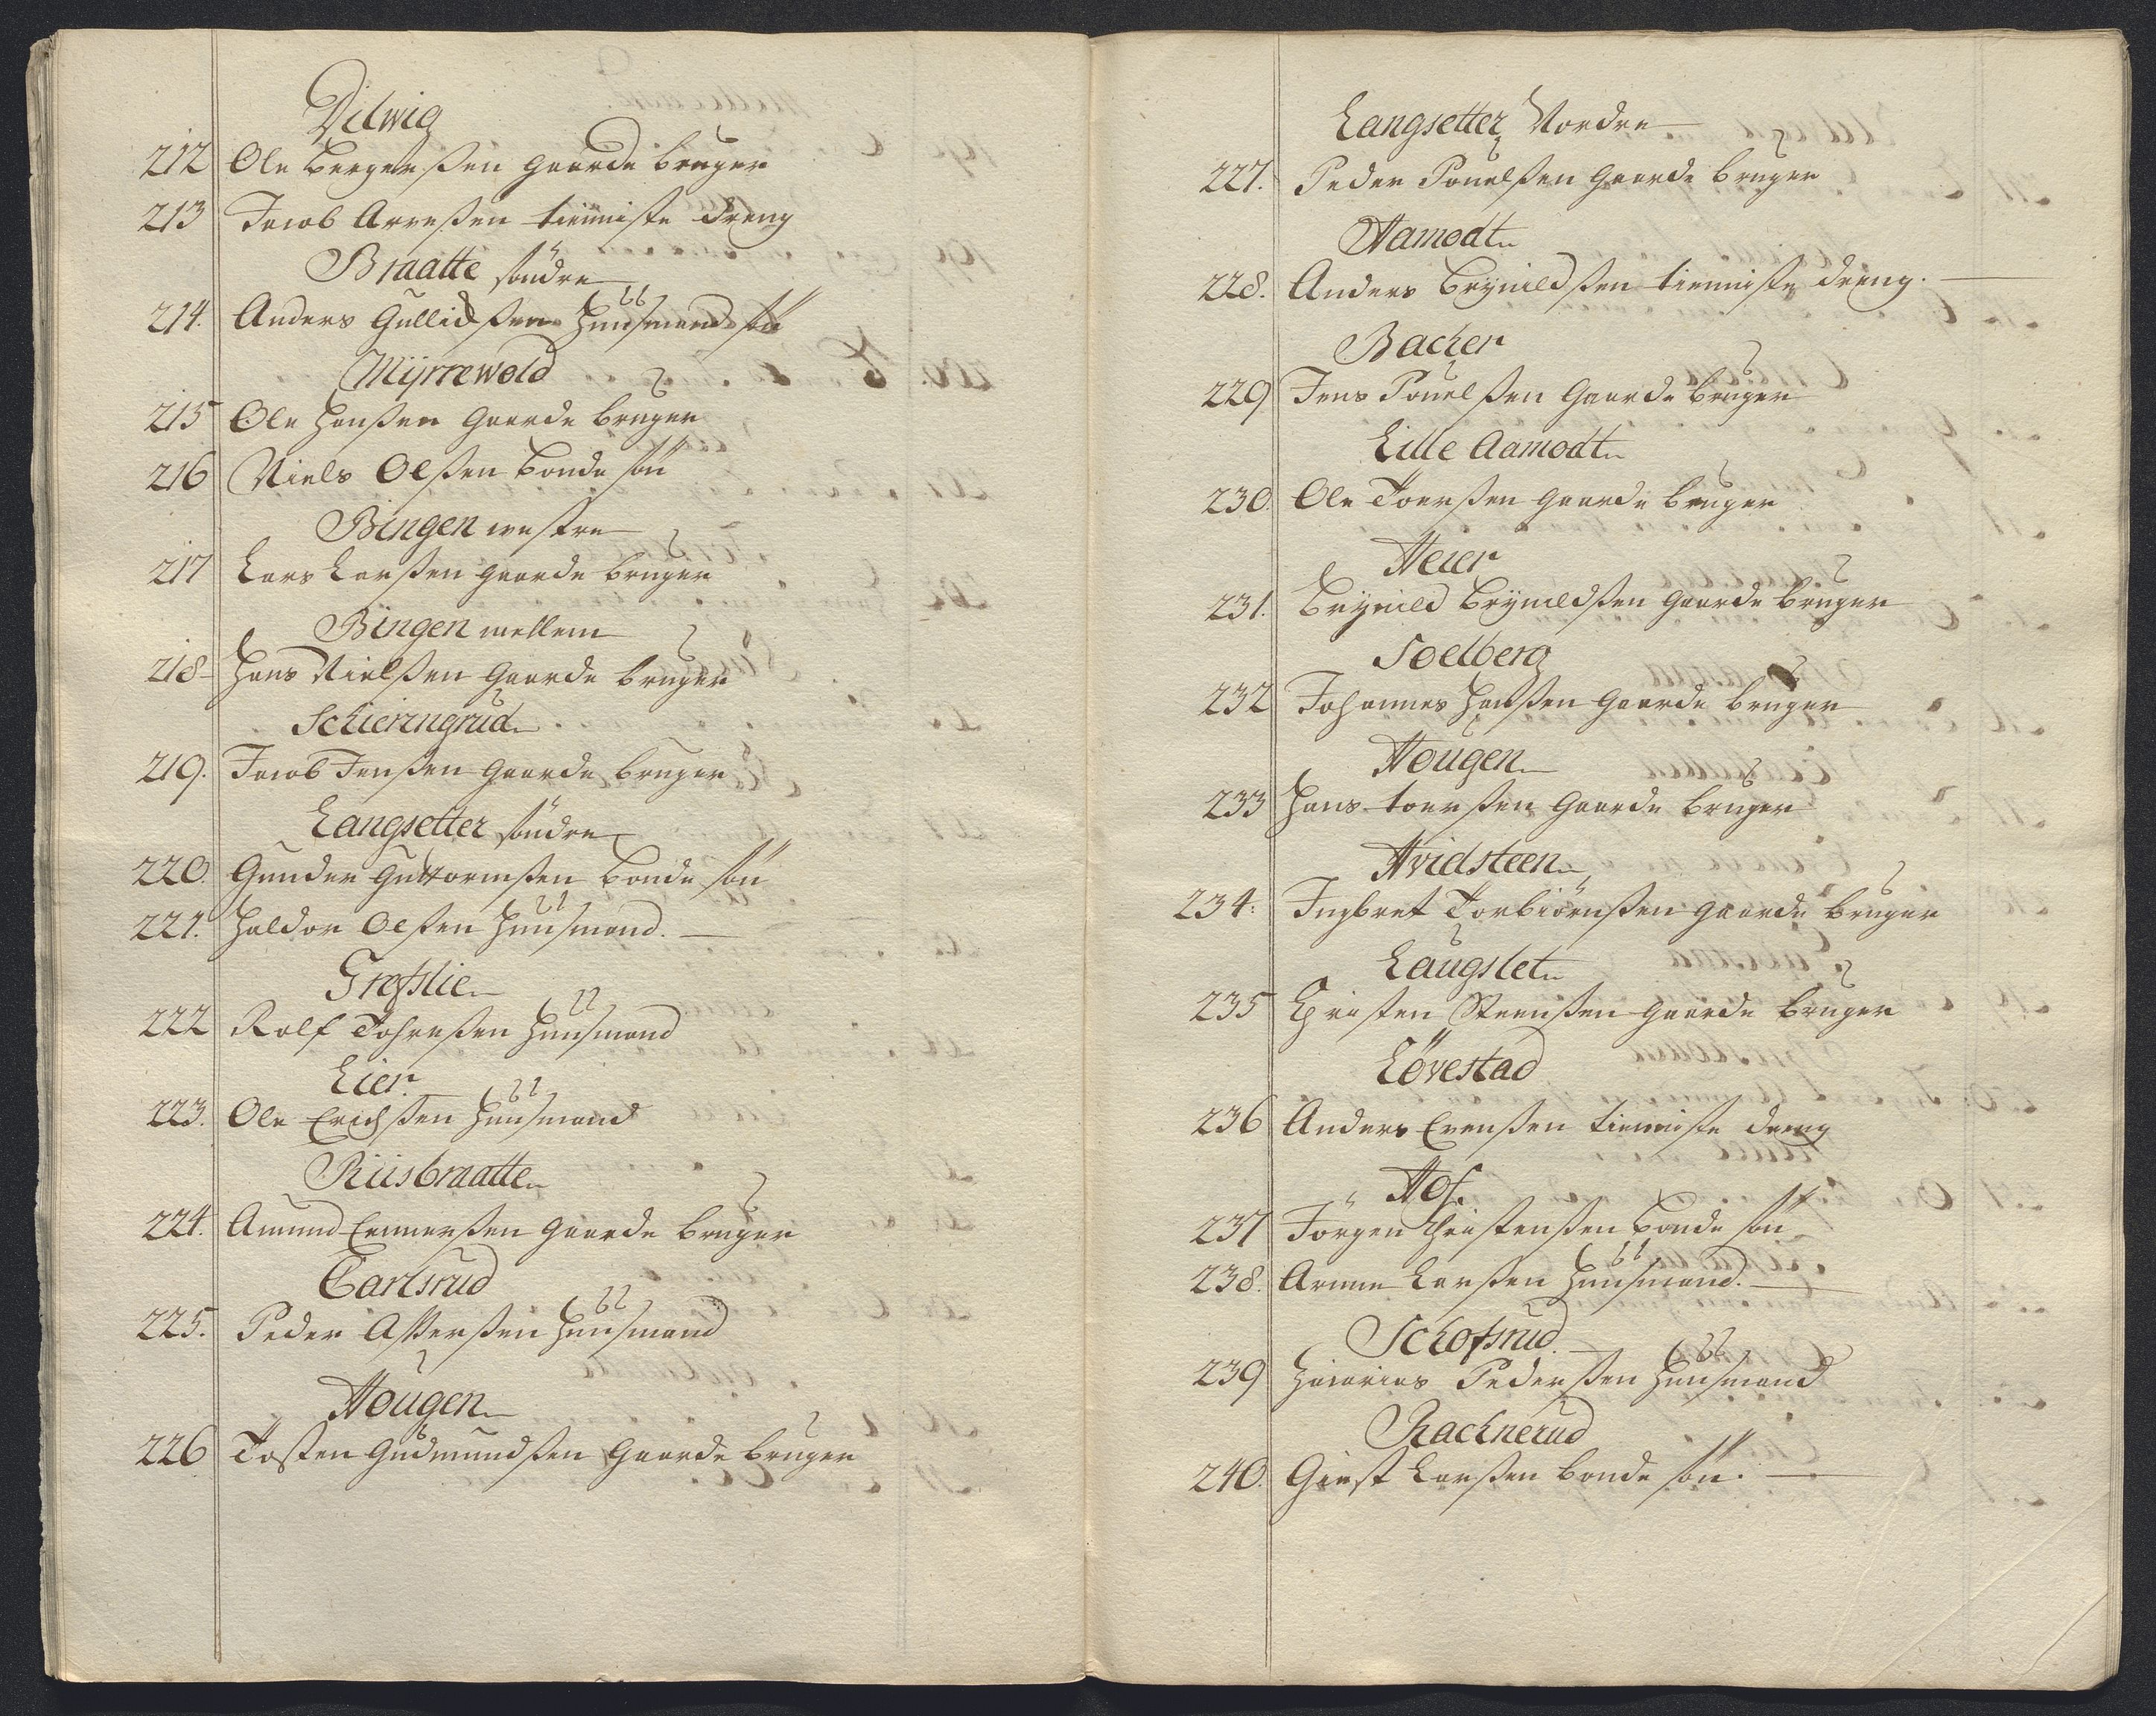 Vilwig
212 Ole Bergersen Gaarde bruger
213 Jacob Arresen tienniste dreng
Braatte søndre
214. Anders Gullidsen Huusmands søn
Mÿrrewold
215 Ole Hansen Gaarde bruger
216 Niels Olsen bonde søn
Bingen westre
217 Lars Larsen Gaarde bruger
Bingen mellem
218 Hans Nielsen Gaarde bruger
Schierrngrud
219. Jacob Jensen Gaarde bruger
Langsetter søndre
220. Gunder Guttormsen bonde søn
221. Haldor Olsen Huusmand.
Grefslie
222 Rolf Tohresen Huusmand
Lier
223. Ole Erichsen Huusmand
Riisbraatte
224. Amund Ennersen Gaarde bruger
Carlsrud
225. Peder Assersen Huusmand
Hougen
226 Tosten Gudmundsen Gaarde bruger
Langsetter Nordre
227. Peder Pouelsen Gaarde bruger
Aamodt
228. Anders Brÿnildsen tienniste dreng.
Bacher
229 Jens Pouelsen Gaarde bruger
Lille Aamodt
230. Ole Toersen Gaarde bruger
Heier
231. Brÿnild Brÿnildsen Gaarde bruger
Soelberg
232 Johannes Hansen Gaarde bruger
Hougen
233 Hans Toersen Gaarde bruger
Hvidsteen
234. Ingbret Torbiørnsen Gaarde bruger
Laugslet
235 Christen Steensen Gaarde bruger
Løvestad
236 Anders Evensen tienniste dreng
Hof.
237 Jörgen Christensen bonde søn
238. Arnne Larsen Huusmand.
Schofsrud.
239 Pedersen Huusmand
Rachnerud
240. Giest Larsen bonde søn.